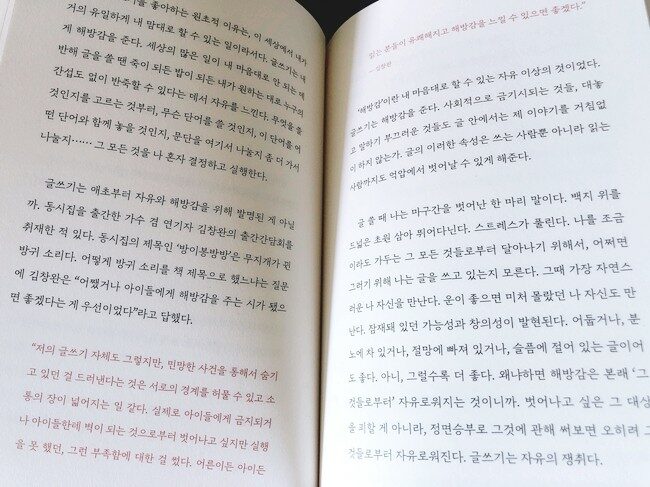 기를 좋아하는 원초적 이유는, 이 세상에서 내가
거의 유일하게 내 맘대로 할 수 있는 일이라서다. 글쓰기는 내
게 해방감을 준다. 세상의 많은 일이 내 마음대로 안 되는 데
반해 글을 쓸 땐 죽이 되든 밥이 되든 내가 원하는 대로 누구의
간섭도 없이 반죽할 수 있다는 데서 자유를 느낀다. 무엇을 쓸
것인지를 고르는 것부터, 무슨 단어를 쓸 것인지, 이 단어를 어
떤 단어와 함께 놓을 것인지, 문단을 여기서 나눌지 좀 더 가서
나눌지…… 그 모든 것을 나 혼자 결정하고 실행한다.
글쓰기는 애초부터 자유와 해방감을 위해 발명된 게 아닐
까. 동시집을 출간한 가수 겸 연기자 김창완의 출간간담회를
취재한 적 있다. 동시집의 제목인 '방이봉방방'은 무지개가 뀐
방귀 소리다. 어떻게 방귀 소리를 책 제목으로 했느냐는 질문
에 김창완은 "어쨌거나 아이들에게 해방감을 주는 시가 됐으
면 좋겠다는 게 우선이었다"라고 답했다.
"저의 글쓰기 자체도 그렇지만, 민망한 사건을 통해서 숨기
고 있던 걸 드러낸다는 것은 서로의 경계를 허물 수 있고 소
통의 장이 넓어지는 일 같다. 실제로 아이들에게 금지되거
나 아이들한테 벽이 되는 것으로부터 벗어나고 싶지만 실행
을 못 했던, 그런 부족함에 대한 걸 썼다. 어른이든 아이든
읽는 분들이 유쾌해지고 해방감을 느낄 수 있으면 좋겠다."
— 김창완
'해방감'이란 내 마음대로 할 수 있는 자유 이상의 것이었다.
글쓰기는 해방감을 준다. 사회적으로 금기시되는 것들, 대놓
고 말하기 부끄러운 것들도 글 안에서는 제 이야기를 거침없
이 하지 않는가. 글의 이러한 속성은 쓰는 사람뿐 아니라 읽는
사람까지도 억압에서 벗어날 수 있게 해준다.
글 쓸 때 나는 마구간을 벗어난 한 마리 말이다. 백지 위를
드넓은 초원 삼아 뛰어다닌다. 스트레스가 풀린다. 나를 조금
이라도 가두는 그 모든 것들로부터 달아나기 위해서, 어쩌면
그러기 위해서 나는 글을 쓰고 있는지 모른다. 그때 가장 자연스
러운 나 자신을 만난다. 운이 좋으면 미처 몰랐던 나 자신도 만
난다. 잠재돼 있던 가능성과 창의성이 발현된다. 어둡거나, 분
노에 차 있거나, 절망에 빠져 있거나, 슬픔에 절어 있는 글이어
도 좋다. 아니, 그럴수록 더 좋다. 왜냐하면 해방감은 본래 '그
것들로부터' 자유로워지는 것이니까. 벗어나고 싶은 그 대상
을 피할 게 아니라, 정면승부로 그것에 관해 써보면 오히려 그
것들로부터 자유로워진다. 글쓰기는 자유의 쟁취다.